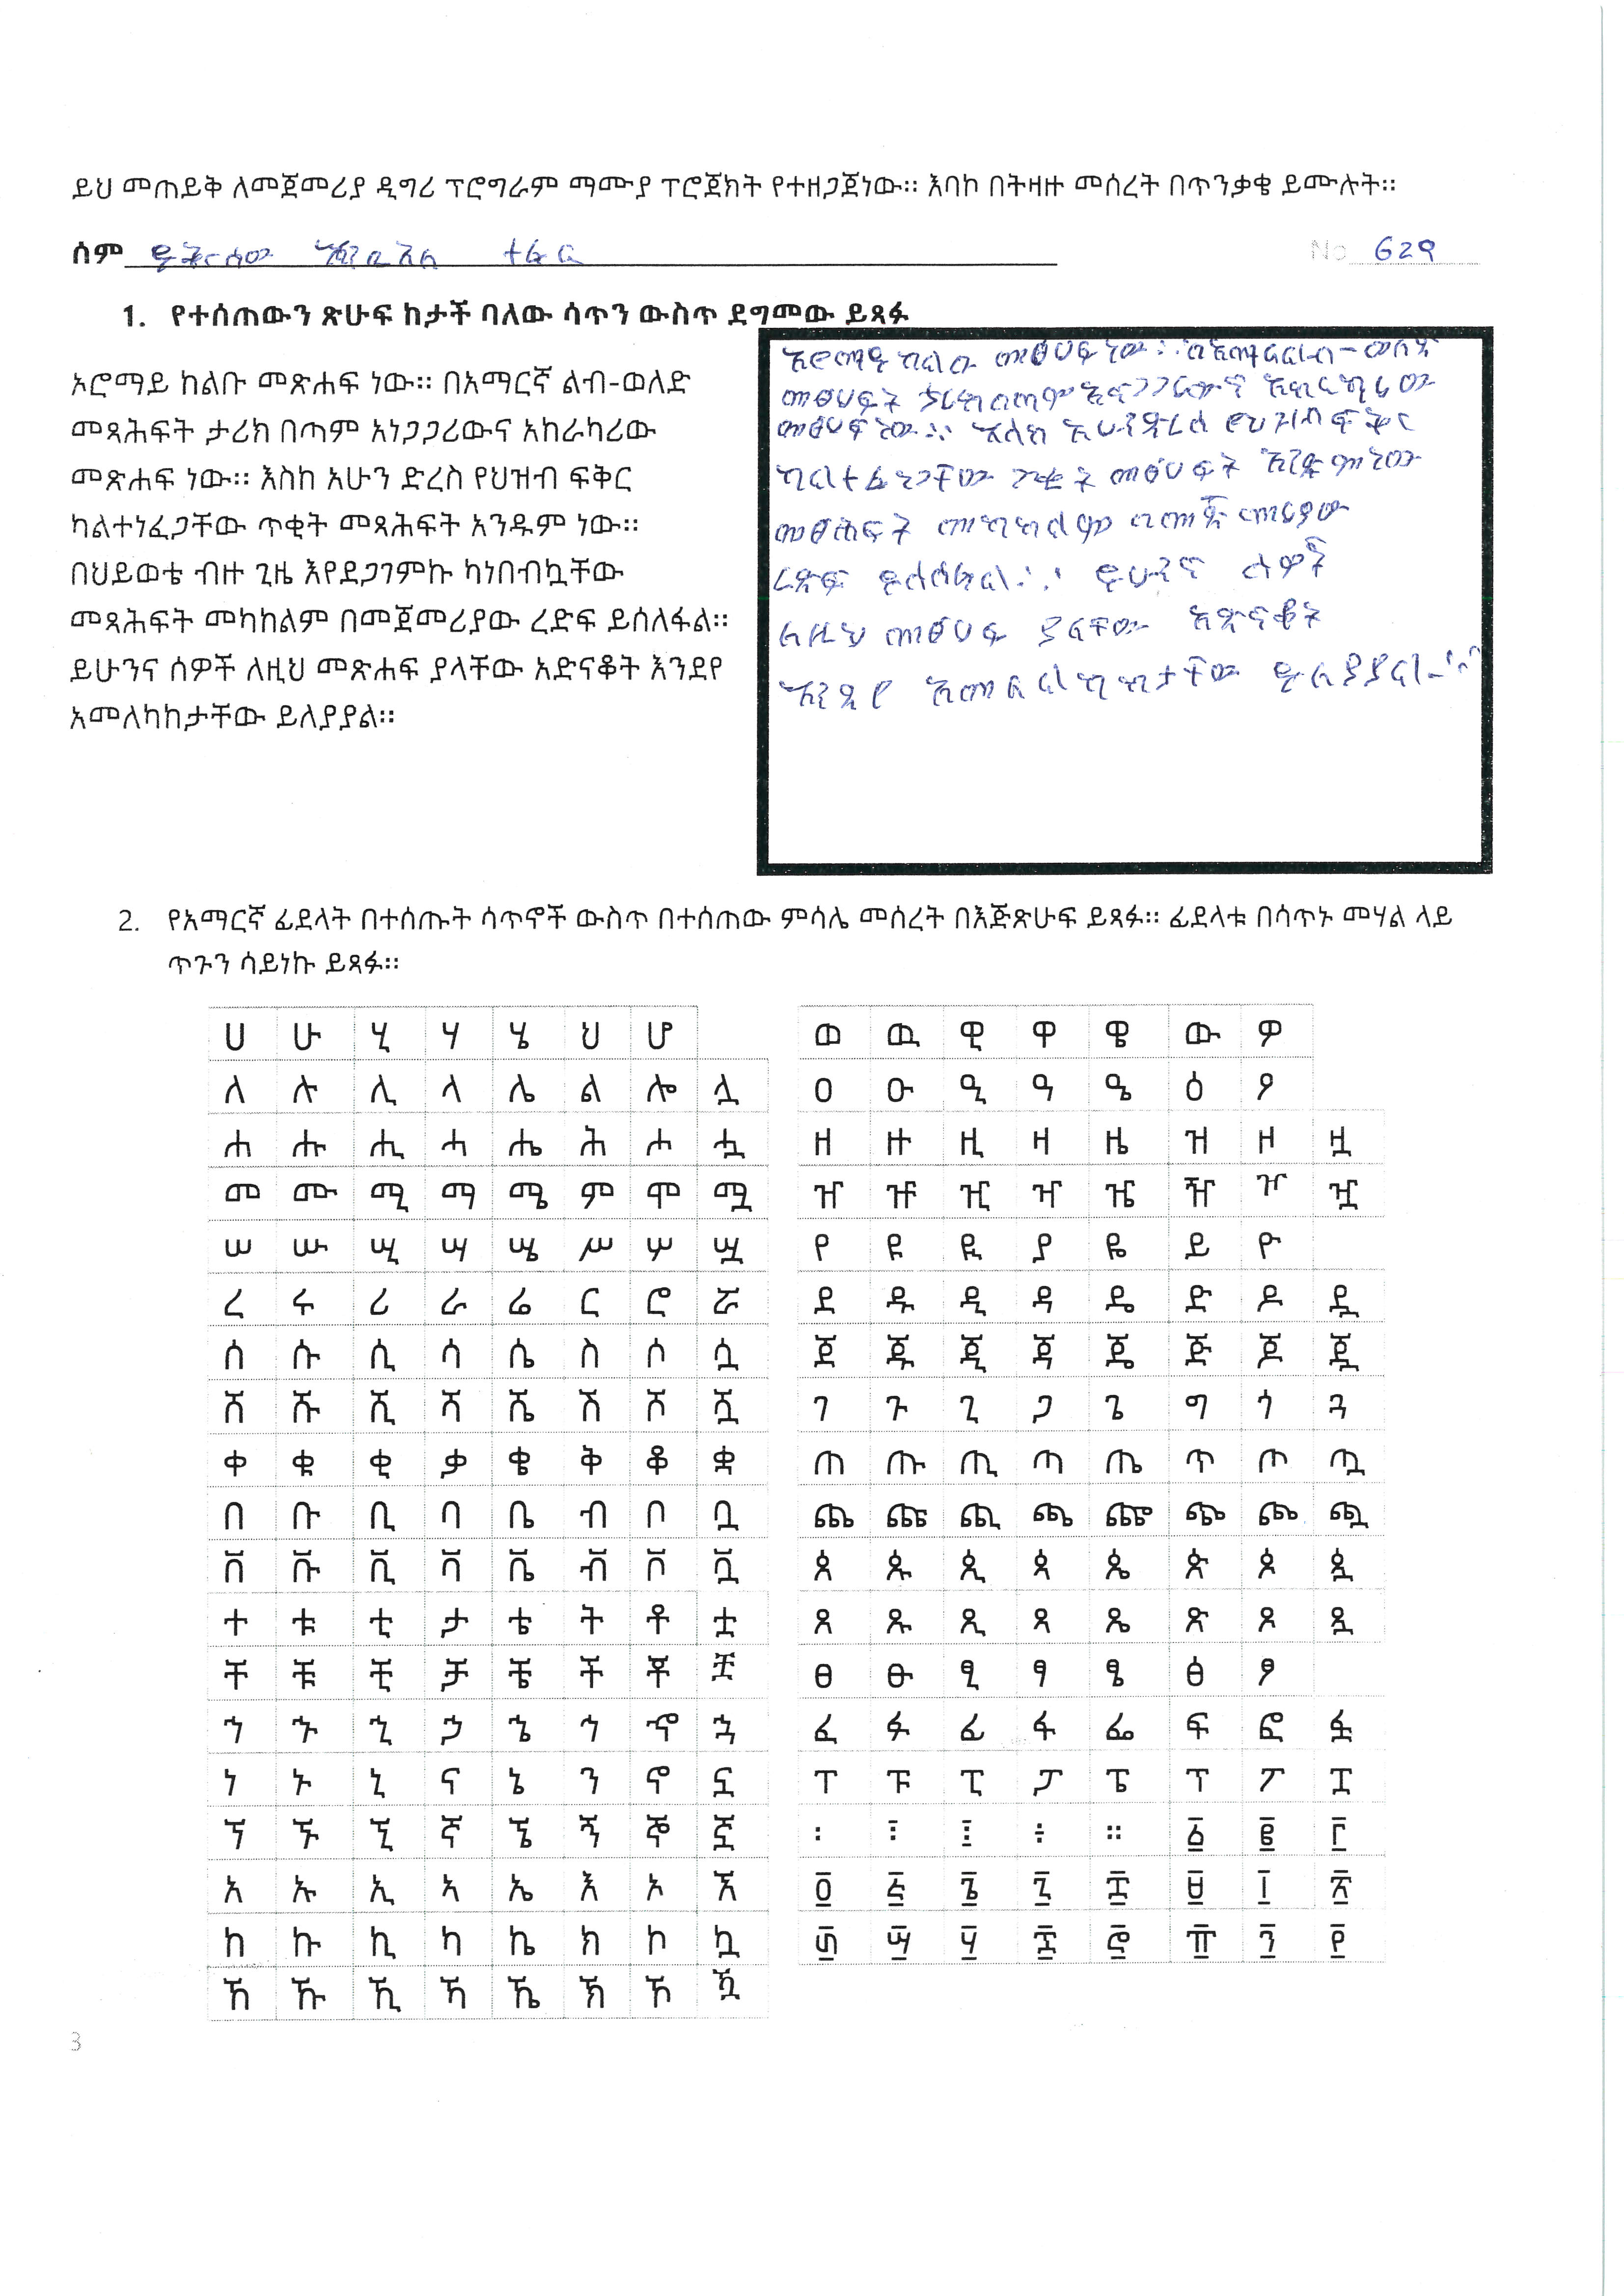 ይህ መጠይቅ ለመጀመሪያ ዲግሪ ፕሮግራም ማሙያ ፕሮጀክት የተዘጋጀነው። እባኮ በትዛዙ መሰረት በጥንቃቄ ይሙሉት።
ስም ተፈራ No 629
1. የተሰጠውን ጽሁፍ ከታች ባለው ሳጥን ውስጥ ደግመው ይጻፉ
ኦሮማይ ከልቡ መጽሐፍ ነው። በአማርኛ ልብ-ወለድ
መጻሕፍት ታሪክ በጣም አነጋጋሪውና አከራካሪው
መጽሐፍ ነው። እስከ አሁን ድረስ የህዝብ ፍቅር
ካልተነፈጋቸው ጥቂት መጻሕፍት አንዱም ነው።
በህይወቴ ብዙ ጊዜ እየደጋገምኩ ካነበብኳቸው
መጻሕፍት መካከልም በመጀመሪያው ረድፍ ይሰለፋል።
ይሁንና ሰዎች ለዚህ መጽሐፍ ያላቸው አድናቆት እንደየ
አመለካከታቸው ይለያያል።
ኦሮማይ ከልቡ መፅሀፍ ነው። ወለድ
መፅሀፍት ታሪክ በጣም አነጋጋሪውና አከራካሪው
መፅሀፍ ነው። እስከ አሁን ድረስ የህዝብ ፍቅር
ካልተፈነጋቸው ጥቂት መፅሀፍት እንዱም ነው
መፅሐፍት መካከልም በመጀመሪያው
ረድፍ ይሰለፋል። ይሁንና ሰዎች
ለዚህ መፅሀፍ ያላቸው አድናቆት
እንደየ አመለካከታቸው ይለያያል።
2. የአማርኛ ፊደላት በተሰጡት ሳጥኖች ውስጥ በተሰጠው ምሳሌ መሰረት በእጅጽሁፍ ይጻፉ። ፊደላቱ በሳጥኑ መሃል ላይ
ጥጉን ሳይነኩ ይጻፉ።
ሀ ሁ ሂ ሃ ሄ ህ ሆ
ለ ሉ ሊ ላ ሌ ል ሎ ሏ
ሐ ሑ ሒ ሓ ሔ ሕ ሖ ሗ
መ ሙ ሚ ማ ሜ ም ሞ ሟ
ሠ ሡ ሢ ሣ ሤ ሥ ሦ ሧ
ረ ሩ ሪ ራ ሬ ር ሮ ሯ
ሰ ሱ ሲ ሳ ሴ ስ ሶ ሷ
ሸ ሹ ሺ ሻ ሼ ሽ ሾ ሿ
ቀ ቁ ቂ ቃ ቄ ቅ ቆ ቋ
በ ቡ ቢ ባ ቤ ብ ቦ ቧ
ቨ ቩ ቪ ቫ ቬ ቭ ቮ ቯ
ተ ቱ ቲ ታ ቴ ት ቶ ቷ
ቸ ቹ ቺ ቻ ቼ ች ቾ ቿ
ኀ ኁ ኂ ኃ ኄ ኅ ኆ ኋ
ነ ኑ ኒ ና ኔ ን ኖ ኗ
ኘ ኙ ኚ ኛ ኜ ኝ ኞ ኟ
አ ኡ ኢ ኣ ኤ እ ኦ ኧ
ከ ኩ ኪ ካ ኬ ክ ኮ ኳ
ኸ ኹ ኺ ኻ ኼ ኽ ኾ ዃ
ወ ዉ ዊ ዋ ዌ ው ዎ
ዐ ዑ ዒ ዓ ዔ ዕ ዖ
ዘ ዙ ዚ ዛ ዜ ዝ ዞ ዟ
ዠ ዡ ዢ ዣ ዤ ዥ ዦ ዧ
የ ዩ ዪ ያ ዬ ይ ዮ
ደ ዱ ዲ ዳ ዴ ድ ዶ ዷ
ጀ ጁ ጂ ጃ ጄ ጅ ጆ ጇ
ገ ጉ ጊ ጋ ጌ ግ ጎ ጓ
ጠ ጡ ጢ ጣ ጤ ጥ ጦ ጧ
ጨ ጩ ጪ ጫ ጬ ጭ ጮ ጯ
ጰ ጱ ጲ ጳ ጴ ጵ ጶ ጷ
ጸ ጹ ጺ ጻ ጼ ጽ ጾ ጿ
ፀ ፁ ፂ ፃ ፄ ፅ ፆ
ፈ ፉ ፊ ፋ ፌ ፍ ፎ ፏ
ፐ ፑ ፒ ፓ ፔ ፕ ፖ ፗ
፡ ፣ ፤ ፥ ። ፩ ፪ ፫
፬ ፭ ፮ ፯ ፰ ፱ ፲ ፳
፴ ፵ ፶ ፷ ፸ ፹ ፺ ፻
3